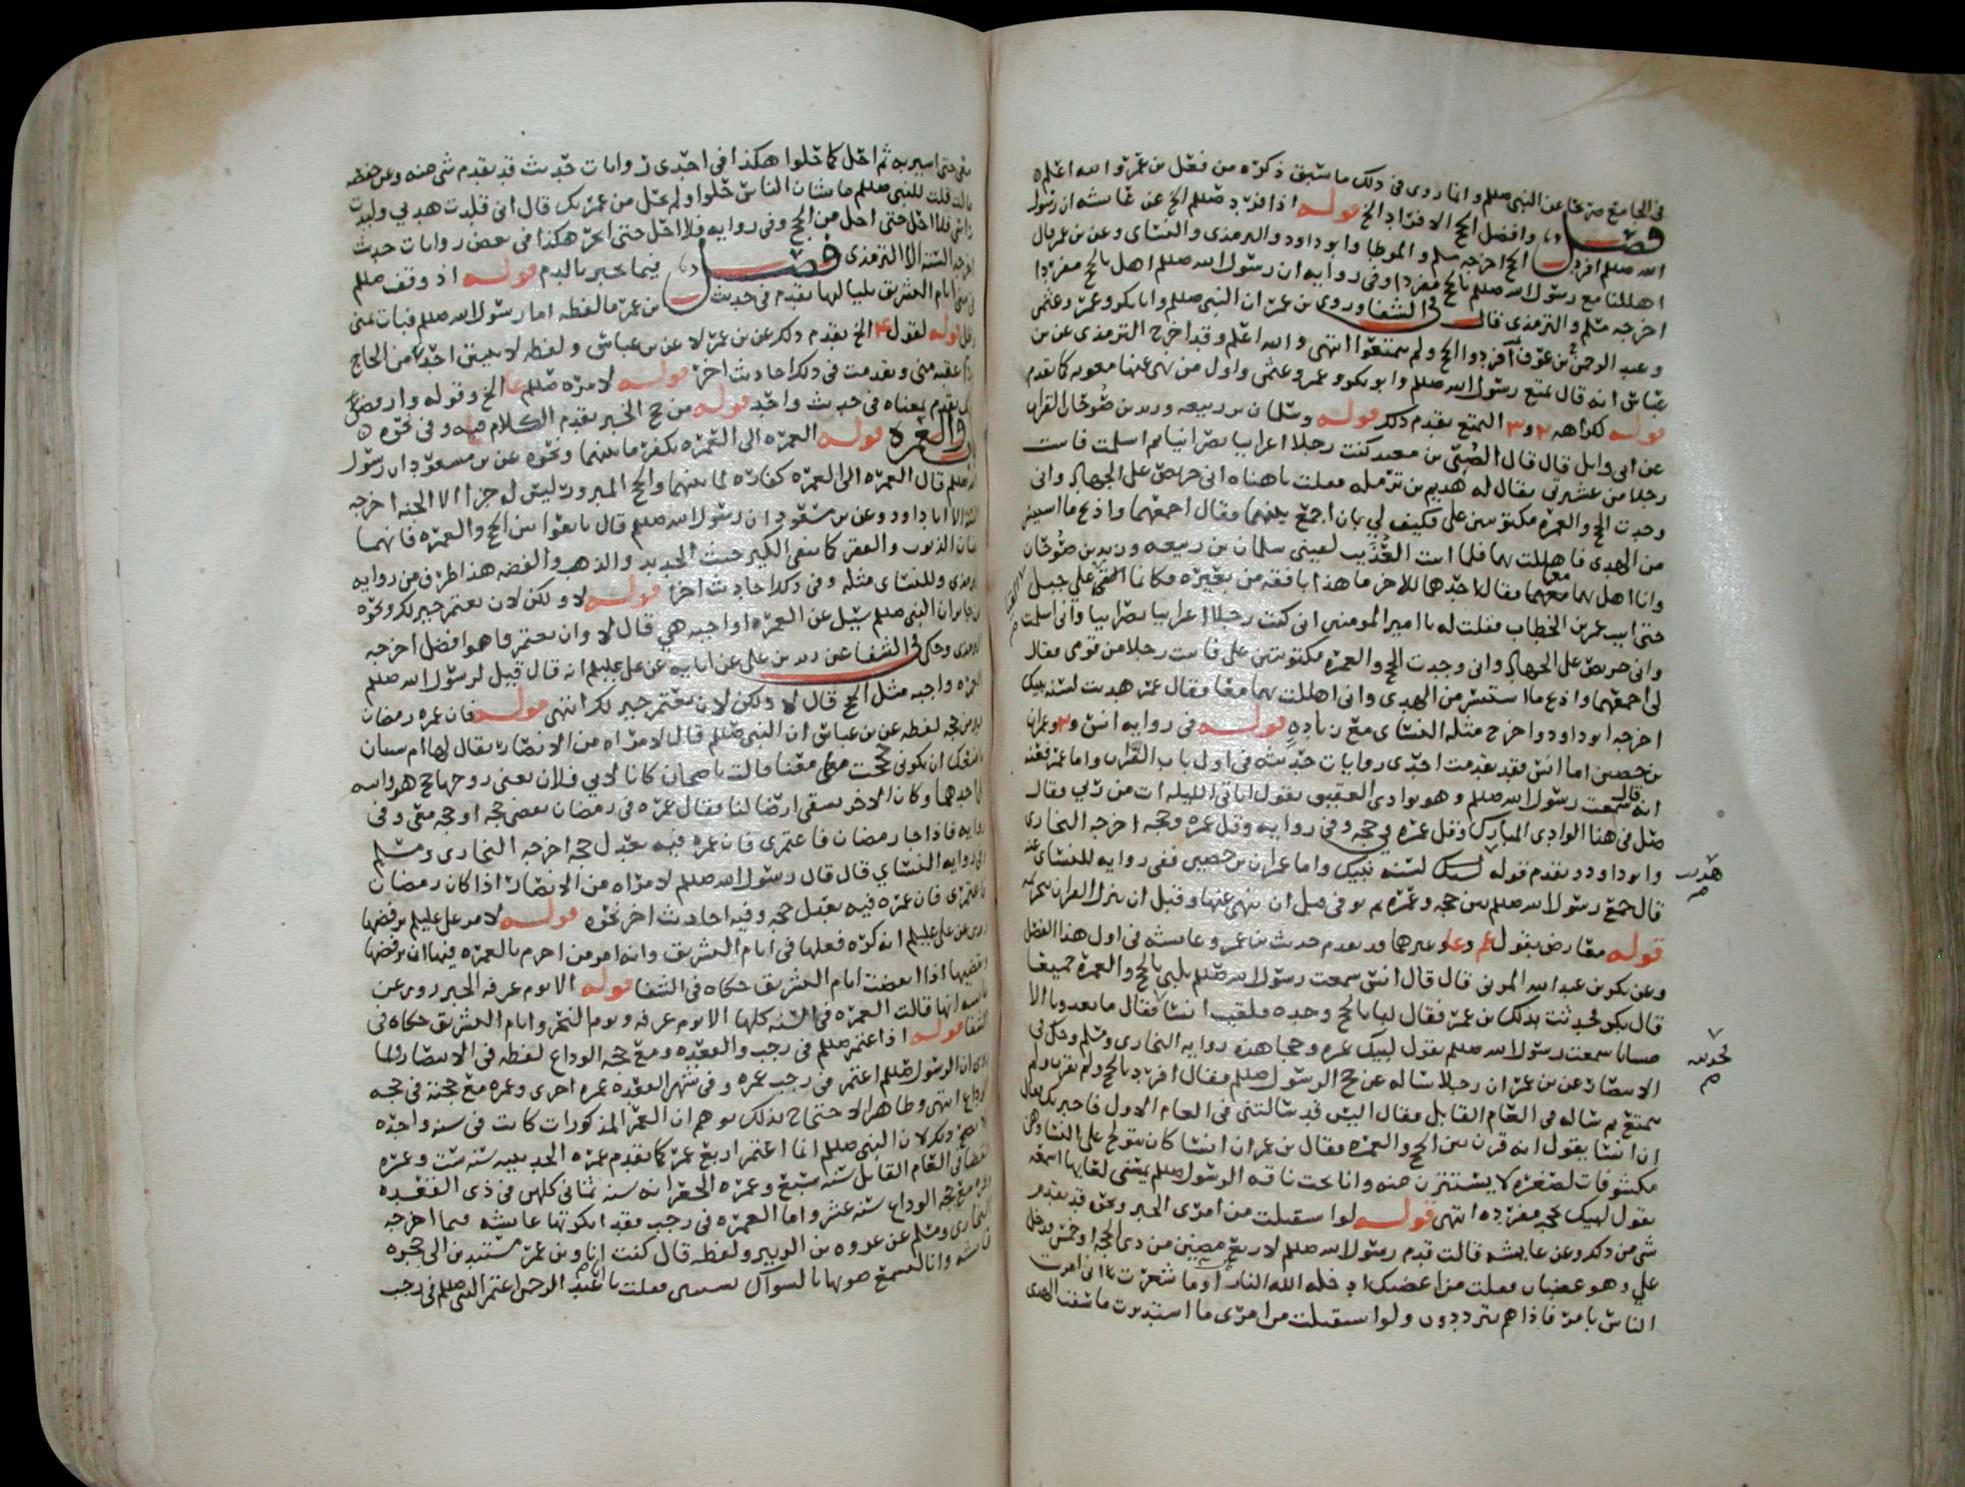 في الجامع صريحًا عن النبي صللم وانما روى في ذلك ما سبق ذكره من فعل بن عمر والله اعلم ه
فصل وافضل الحج الافراد الخ قوله اذا فرد صللم الخ عن عائشه ان رسول
الله صللم افرد الحج اخرجه مسلم والموطا وابو داود والترمذي والنسائي وعن بن عمر قال
اهللنا مع رسول الله صللم بالحج مفردا وفي روايه ان رسول الله صللم اهل بالحج مفردا
اخرجه مسلم والترمذي قال في الشفا وروى بن عمر ان النبي صللم وابا بكر وعمر وعثمن
وعبد الرحمن بن عوف افردوا الحج ولم يتمتعوا انتهى والله اعلم وقد اخرج الترمذي عن بن
عباس انه قال تمتع رسول الله صللم وابو بكر وعمر وعثمن واول من نهى عنها معويه كما تقدم
قوله كراهه التمتع تقدم ذلك قوله وسلمان بن ربيعه وزيد بن صوحان القران
عن ابي وايل قال قال الصبي بن معبد كنت رجلا اعرابيا نصرانيا ثم اسلمت فاتيت
رجلا من عشيرتي يقال له هديم بن ثرمله فقلت يا هناه اني حريص على الجهاد واني
وجدت الحج والعمره مكتوبتين علي فكيف لي بان اجمع بينهما فقال اجمعهما واذبح ما استيسر
من الهدي فاهللت بهما فلما اتيت العذيب لقيني سلمان بن ربيعه وزيد بن صوحان
وانا اهل بهما معهما فقال احدهما للاخر ما هذا بافقه من بعيره فكانما القي علي جبل
حتى اتيت عمر بن الخطاب فقلت له يا امير المومنين اني كنت رجلا اعرابيا نصرانيا واني اسلمت
واني حريص على الجهاد واني وجدت الحج والعمره مكتوبتين علي فاتيت رجلا من قومي فقال
لي اجمعهما واذبح ما استيسر من الهدي واني اهللت بهما معا فقال عمر هديت لسنه نبيك
اخرجه ابو داود واخرج مثله النسائي مع زياده قوله في روايه انس وعمران
بن حصين اما انس فقد تقدمت احدى روايات حديثه في اول باب القران واما عمر فعنه
انه قال سمعت رسول الله صللم وهو بوادي العقيق يقول اتاني الليله ات من ربي فقال
صل في هذا الوادي المبارك وقل عمره في حجه وفي روايه وقل عمره وحجه اخرجه البخاري
وابو داود وتقدم قوله لسنه نبيك واما عمران بن حصين ففي روايه للنسائي عنه
قال جمع رسول الله صللم بين حجه وعمره ثم توفي قبل ان ينهى عنها وقبل ان ينزل القران بتحريمه
قوله معارض بقول وغيرهما قد تقدم حديث بن عمر وعايشه في اول هذا الفصل
وعن بكر بن عبد الله المزني قال قال انس سمعت رسول الله صللم يلبي بالحج والعمره جميعا
قال بكر فحدثت بذلك بن عمر فقال لبى بالحج وحده فلقيت انسا فقال ما تعدونا الا
صبيانا سمعت رسول الله صللم يقول لبيك عمره وحجا هذه روايه البخاري ومسلم وحكى في
الانتصار عن بن عمر ان رجلا ساله عن حج الرسول صللم فقال افرد بالحج ولم يقرن ولم
يتمتع ثم ساله في العام القابل فقال اليس قد سالتني في العام الاول فاخبرتك فقال
ان انسا يقول انه قرن بين الحج والعمره فقال بن عمر ان انسا كان يتولج على النسا وهن
مكشوفات لصغره لا يستترن منه وانا تحت ناقه الرسول صللم يمسني لعابها اسمعه
يقول لبيك بحجه مفرده انتهى قوله لو استقبلت من امري الخبر ونحوه قد تقدم
شي من ذلك وعن عايشه قالت قدم رسول الله صللم لاربع مضين من ذي الحجه او خمس فدخل
علي وهو غضبان فقلت من اغضبك ادخله الله النار اوما شعرت اني امرت
الناس بامر فاذا هم يترددون ولو استقبلت من امري ما استدبرت ما سقت الهدي
هديت
لتحريمه
معي حتى اشتريه ثم احل كما حلوا هكذا في احدى روايات حديث قد تقدم شي منه وعن حفصه
قالت قلت للنبي صللم ما شان الناس حلوا ولم تحل من عمرتك قال اني قلدت هديي ولبدت
راسي فلا احل حتى احل من الحج وفي روايه فلا احل حتى انحر هكذا في بعض روايات حديث
اخرجه السته الا الترمذي فصل فيما يجبر بالدم قوله اذ وقف صللم
في منى ايام التشريق بلياليها تقدم في حديث بن عمر ما لفظه اما رسول الله صللم فبات بمنى
وظل قوله لقول الخ تقدم ذلك عن بن عمر لا عن بن عباس ولفظه لا يبيتن احد من الحاج
ورا عقبه منى وتقدمت في ذلك احاديث اخر قوله لامره صللم الخ وقوله وارفض
تقدم معناه في حديث واحد قوله من حج الخبر تقدم الكلام فيه وفي نحوه ه
والعمره قوله العمره الى العمره تكفر ما بينهما ونحوه عن بن مسعود ان رسول
الله صللم قال العمره الى العمره كفاره لما بينهما والحج المبرور ليس له جزا الا الجنه اخرجه
السته الا ابا داود وعن بن مسعود ان رسول الله صللم قال تابعوا بين الحج والعمره فانهما
ينفيان الذنوب والفقر كما ينفي الكير خبث الحديد والذهب والفضه هذا طرف من روايه
الترمذي وللنسائي مثله وفي ذلك احاديث اخر قوله لا ولكن لان تعتمر خير لك ونحوه
عن جابر ان النبي صللم سيل عن العمره اواجبه هي قال لا وان تعتمروا هو افضل اخرجه
الترمذي وحكى في الشفا عن زيد بن علي عن ابايه عن علي عليلم انه قال قيل لرسول الله صللم
العمره واجبه مثل الحج قال لا ولكن لان تعتمر خير لك انتهى قوله فان عمره رمضان
تعدل حجه لفظه عن بن عباس ان النبي صللم قال لامراه من الانصار يقال لها ام سنان
ما منعك ان تكوني حججت معنا قالت ناضحان كانا لابي فلان تعني زوجها حج هو وابنه
على احدهما وكان الاخر يسقي ارضا لنا فقال عمره في رمضان تقضي حجه او حجه معي وفي
روايه فاذا جا رمضان فاعتمري فان عمره فيه تعدل حجه اخرجه البخاري ومسلم
وفي روايه النسائي قال قال رسول الله صللم لامراه من الانصار اذا كان رمضان
فاعتمري فان عمره فيه تعدل حجه وفيه احاديث اخر نحوه قوله لامر علي عليلم برفضها
روي عن علي عليلم انه كره فعلها في ايام التشريق وانه امر من احرم بالعمره فيها ان يرفضها
ويقضيها اذا انقضت ايام التشريق حكاه في الشفا قوله الا يوم عرفه الخبر روى عن
عايشه انها قالت العمره في السنه كلها الا يوم عرفه ويوم النحر وايام التشريق حكاه في
الشفا قوله اذ اعتمر صللم في رجب والقعده ومع حجه الوداع لفظه في الانتصار ولما
روي ان الرسول صللم اعتمر في رجب عمره وفي شهر القعده عمره اخرى وعمره مع حجته في حجه
الوداع انتهى وظاهر الاحتجاج بذلك يوهم ان العمر المذكورات كانت في سنه واحده
ولا يصح ذلك لان النبي صللم انما اعتمر اربع عمر كما تقدم عمره الحديبيه سنه ست وعمره
القضا في العام القابل سنه سبع وعمره الجعرانه سنه ثمان كلهن في ذي القعده
وعمره مع حجه الوداع سنه عشر واما العمره في رجب فقد انكرتها عايشه فيما اخرجه
البخاري ومسلم عن عروه بن الزبير ولفظه قال كنت انا وبن عمر مستندين الى حجره
عايشه وانا لنسمع صوتها بالسواك تستن فقلت يا ابا عبد الرحمن اعتمر النبي صللم في رجب